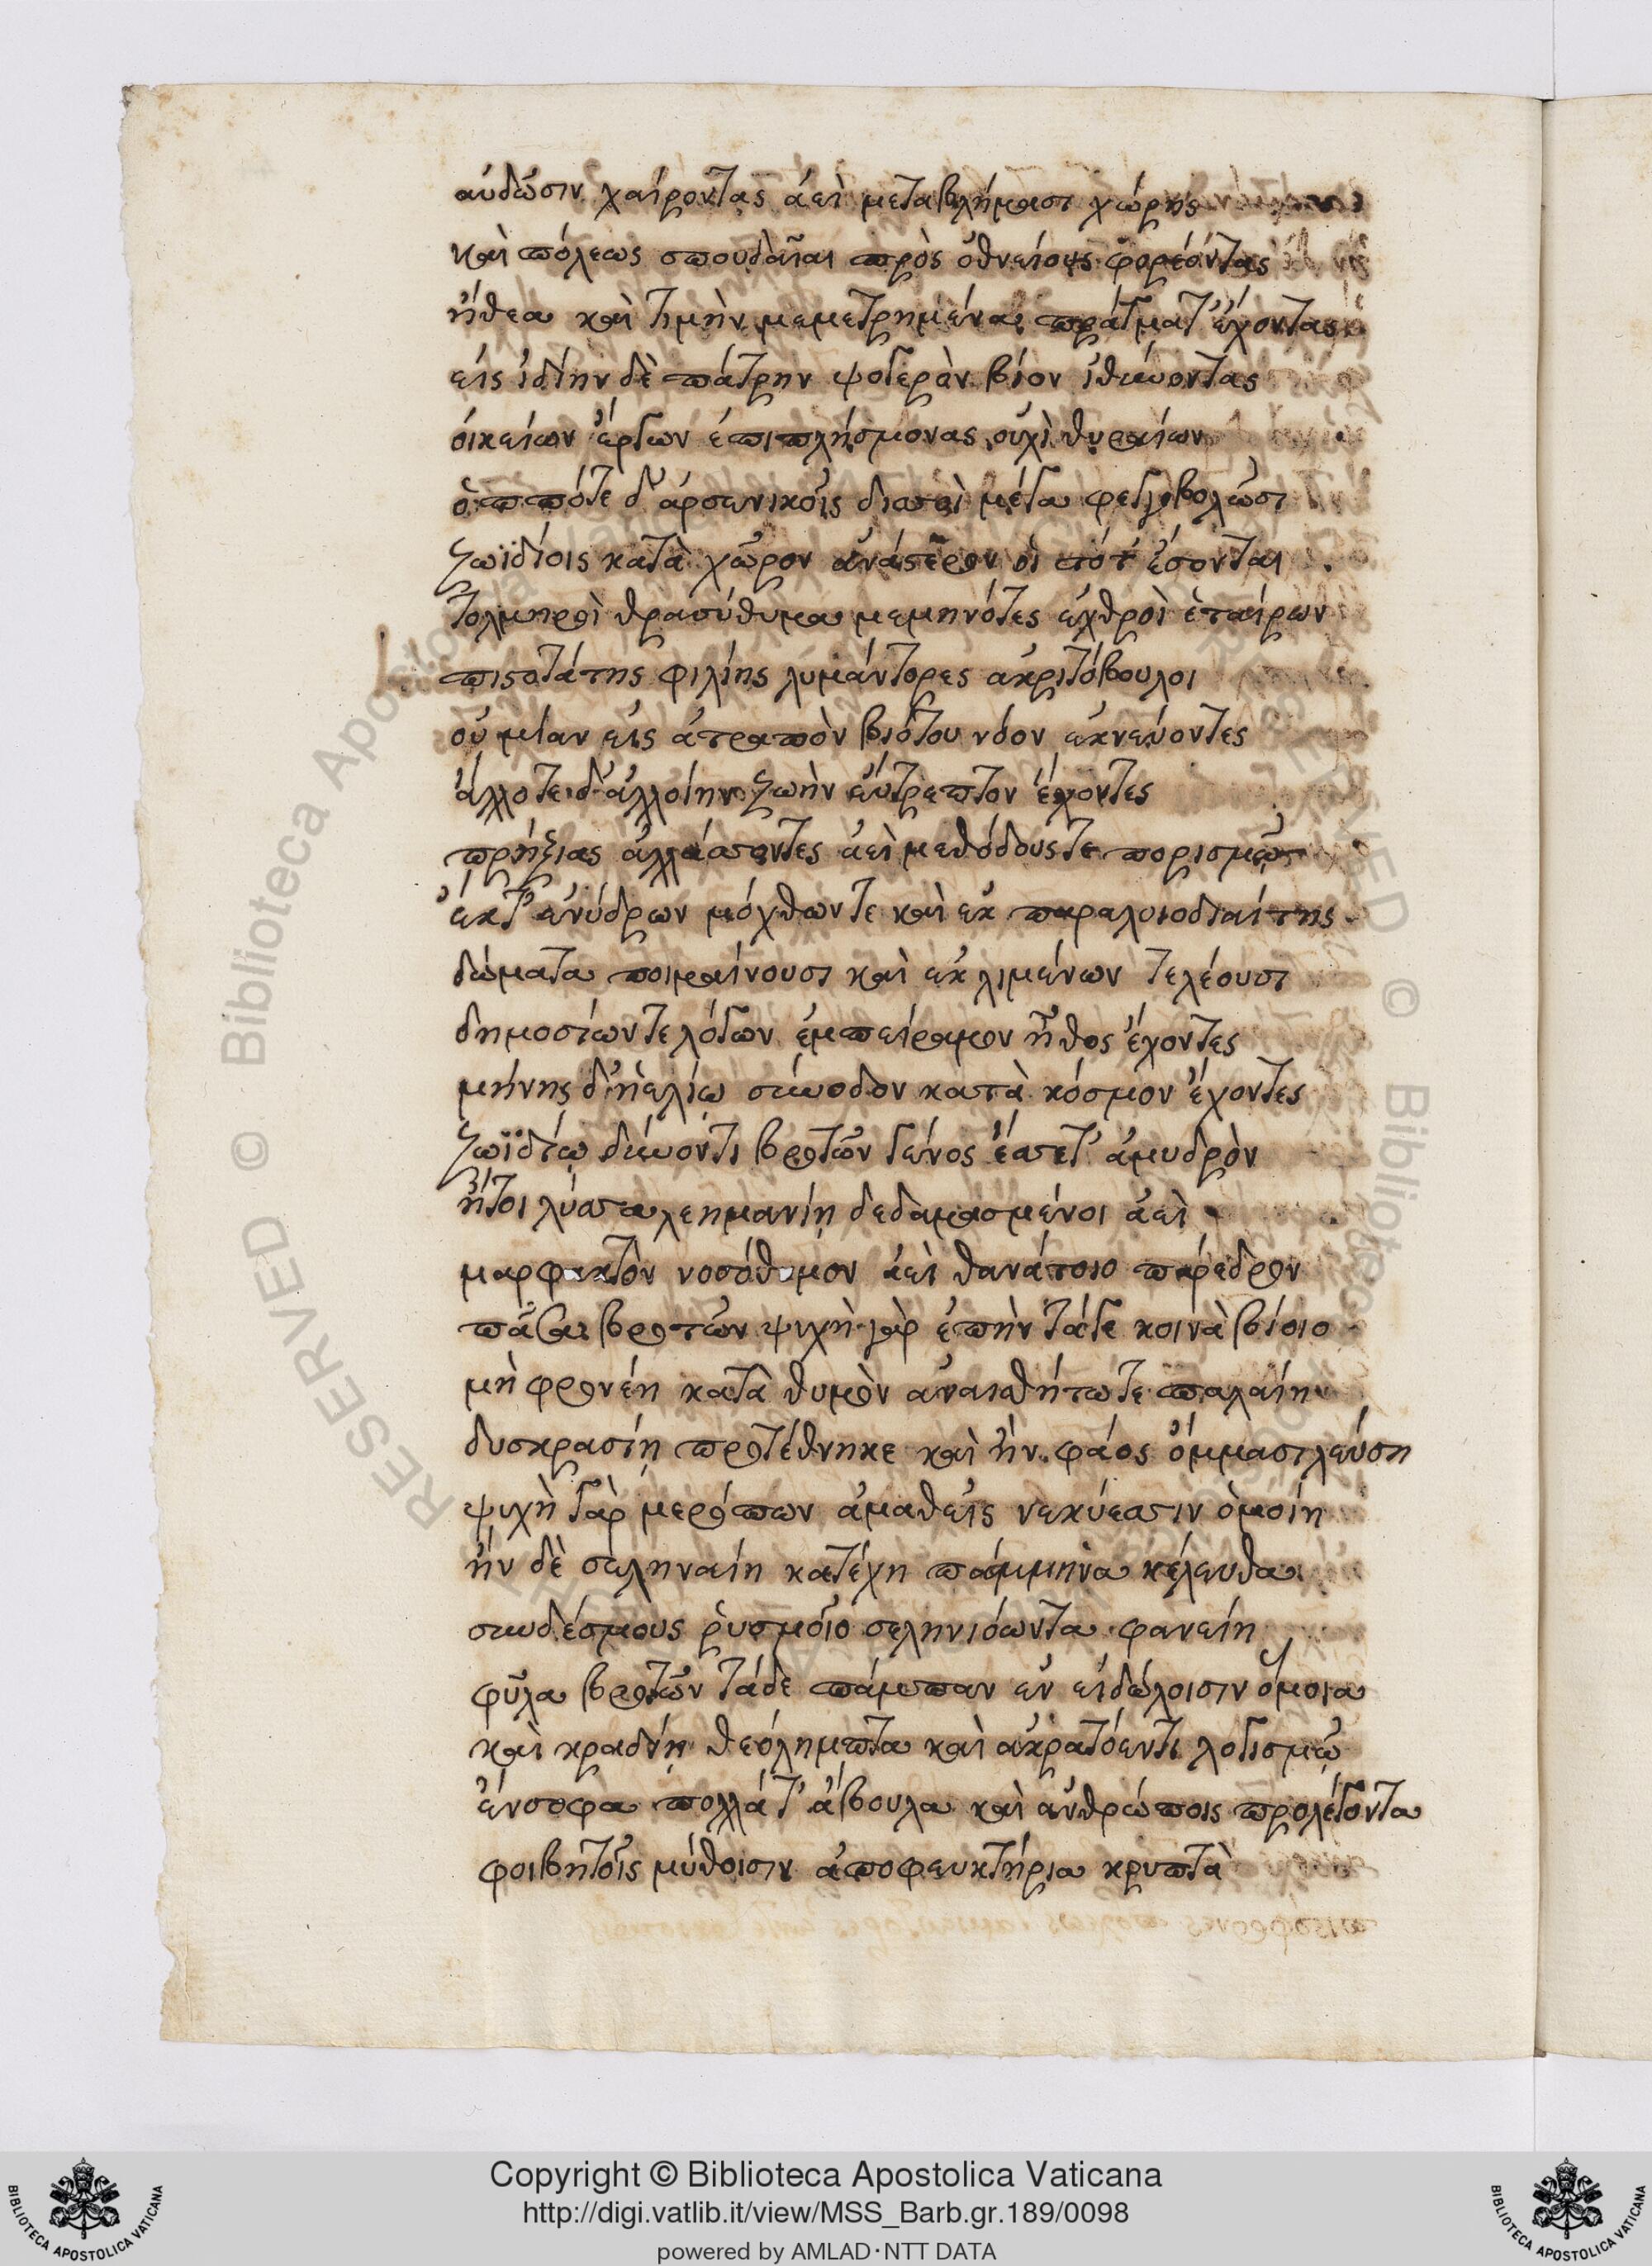 αὐδῶσιν χαίροντας ἀεὶ μεταβλήμασι χώρης
καὶ πόλεως σπουδαῖαι πρὸς ὀθνείους φορέοντας
ἤθεα καὶ τιμὴν μεμετρημένα πράγματ' ἔχοντας
εἰς ἰδίην δὲ πάτρην ψογερὸν βίον ἰθύνοντας
οἰκείων ἔργων ἐπιπλήσμονας οὐχὶ θυραίων
ὁππότε δ' ἀρσενικοῖς δισσοὶ μέγα φεγγοβολῶσι
ζωϊδίοις κατὰ χῶρον ἀνάστερον οἱ τότ' ἔσονται
τολμηροὶ θρασύθυμα μεμηνότες ἐχθροὶ ἑταίρων
πιστοτάτης φιλίης λυμάντορες ἀκριτόβουλοι
οὐ μίαν εἰς ἀτραπὸν βιότου νόον ἐκνεύοντες
ἄλλοτε δ' ἀλλοίην ζωὴν εὔτρεπτον ἔχοντες
πρήξιας ἀλλάσσοντες ἀεὶ μεθόδους τε πορισμῶν
ἔκ τ' ἐνύδρων μόχθων τε καὶ ἐκ παραλυιοδιαίτης
δώματα ποιμαίνουσι καὶ ἐκ λιμένων τελέουσι
δημοσίων τε λόγων ἐμπείραμον ἦθος ἔχοντες
μήνης δ' ἠελίῳ σύνοδον κατὰ κόσμον ἔχοντες
ζωϊδίῳ δύνοντι βροτῶν γένος ἔσσετ' ἀμυδρὸν
ἤτοι λύσσα λεημανίῃ δεδαμασμένοι ἀεὶ
νοσόθυμον ἀεὶ θανάτοιο πάρεδρον
πᾶσα βροτῶν ψυχὴ γὰρ ἐπὴν τάγε κοινὰ βίοιο
μὴ φρονέῃ κατὰ θυμὸν ἀναισθήτω τε παλαίῃ
δυσκρασίῃ προτέθνηκε καὶ ἢν φάος ὄμμασι λεύσῃ
ψυχὴ γὰρ μερόπων ἀμαθεῖς νεκύεσσιν ὁμοίη
ἢν δὲ σεληναίη κατέχῃ πάμμηνα κέλευθα
συνδέσμους ῥυσμοῖο σεληνιόωντα φανείη
φῦλα βροτῶν τάδε πάμπαν ἐν εἰδώλοισιν ὅμοια
καὶ κραδίῃ θεόλημπτα καὶ ἀκρατόεντι λογισμῷ
ἔνσοφα πολλά τ' ἄβουλα καὶ ἀνθρώποις προλέγοντα
φοιβητοῖς μύθοισιν ἀποφευκτήρια κρυπτὰ
Copyright © Biblioteca Apostolica Vaticana
http://digi.vatlib.it/view/MSS_Barb.gr.189/0098
powered by AMLAD·NTT DATA